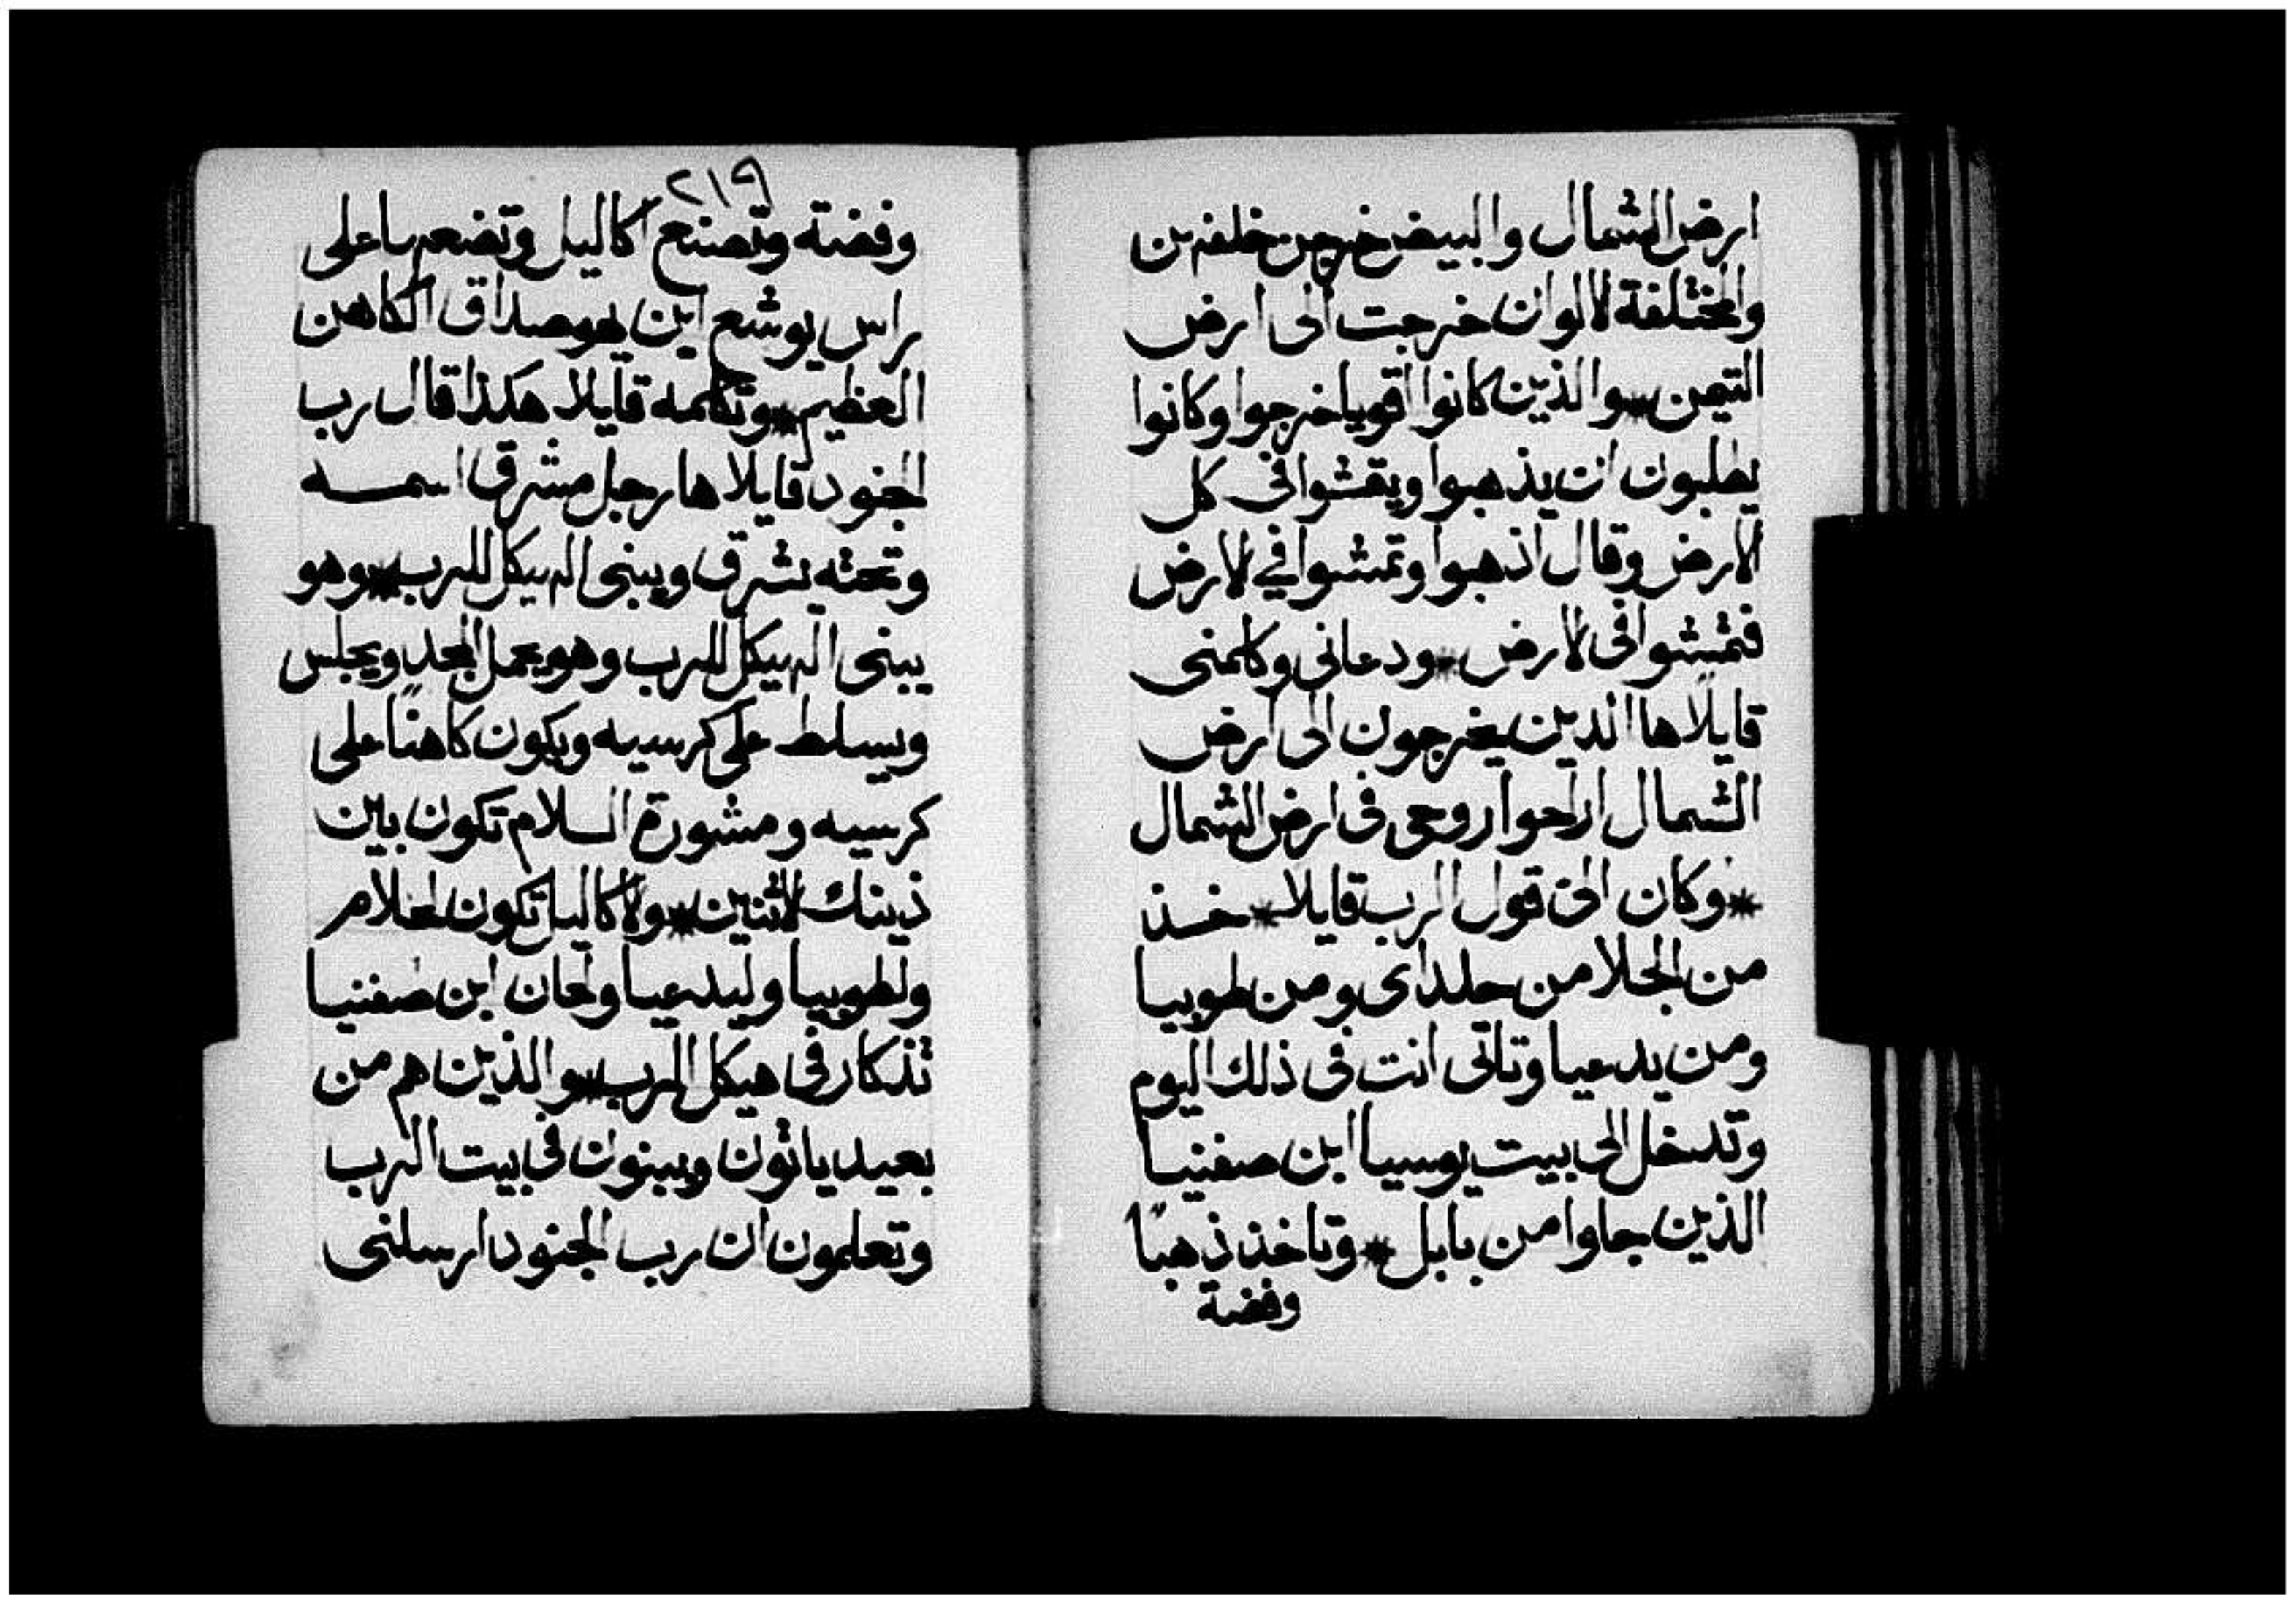 ارض الشمال والبيض خرجن خلفهن
والمختلفة لالوان خرجت الى ارض
التيمن * والذين كانوا اقويا خرجوا وكانوا
يطلبون ان يذهبوا ويقشوا فى كل
الارض وقال اذهبوا وتمشوا في لارض
فتمشوا فى لارض * ودعانى وكلمنى
قايلًا ها الذين يخرجون الى ارض
الشمال اراحوا روحى فى ارض الشمال
* وكان الىّ قول الرب قايلا * خذ
من الجلا من حلداى ومن طوبيا
ومن يدعيا وتاتى انت فى ذلك اليوم
وتدخل الى بيت يوسيا ابن صفنيا
الذين جاوا من بابل * وتاخذ ذهبًا
وفضة
٢١٩
وفضة وتصنع اكاليل وتضعها على
راس يوشع ابن يهوصداق الكاهن
العظيم * وتكلمه قايلا هكذا قال رب
الجنود قايلا ها رجل مشرق اسمه
وتحته يشرق ويبنى الهيكل للرب * وهو
يبنى الهيكل للرب وهو يحمل المجد ويجلس
ويسلط على كرسيه ويكون كاهنًا على
كرسيه ومشورة السلام تكون بين
ذينك لاثنين * ولاكاليل تكون لحلام
ولطوبيا وليدعيا ولحان ابن صفنيا
تذكار فى هيكل الرب * والذين هم من
بعيد ياتون ويبنون فى بيت الرب
وتعلمون ان رب الجنود ارسلنى